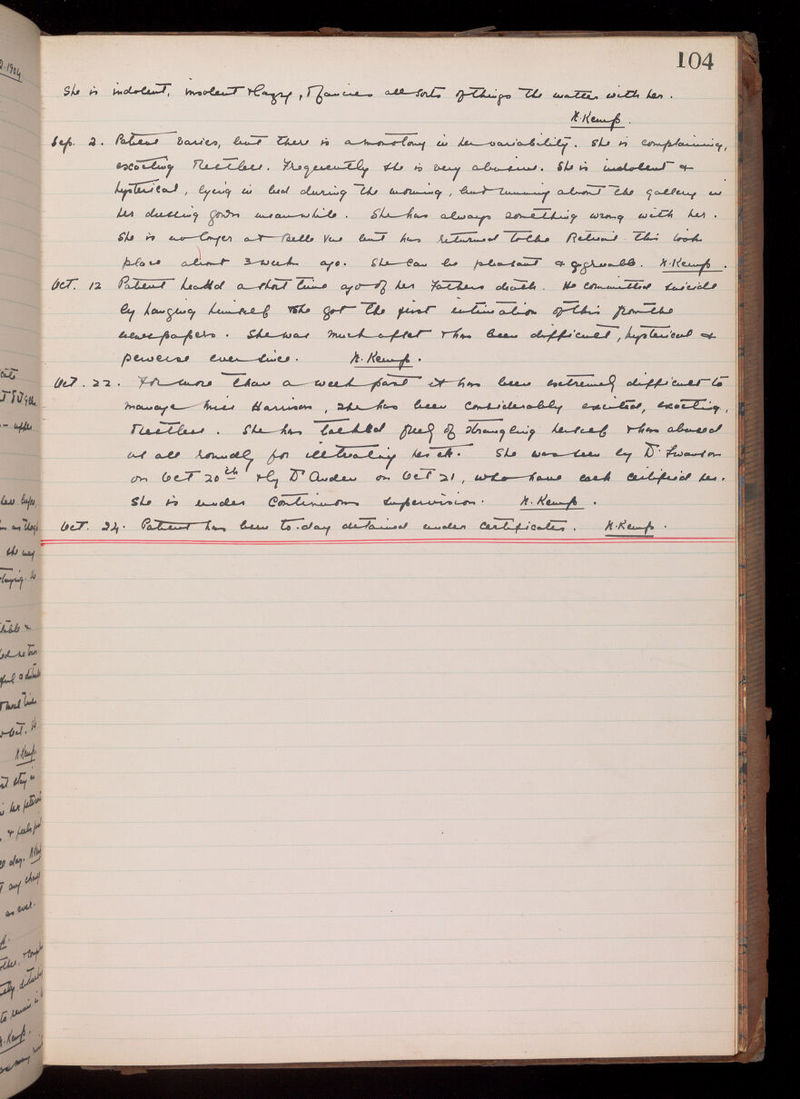 104
She is indolent, insolent & lazy, & fancies all sorts of things the matter with her.
N. Kemp.
Sep. 2. Patient varies, but there is a monotony in her variability. She is complaining,
exacting & restless. Frequently she is very abusive. She is indolent &
hysterical, lying in bed during the morning, but running about the gallery in
her dressing gown meanwhile. She has always something wrong with her.
She is no longer at Belle Vue but has returned to the Retreat. This took
place about 3 weeks ago. She can be pleasant & agreeable. N. Kemp.
Oct. 12 Patient heard a short time ago of her Fathers death. He committed suicide
by hanging himself & she got the first intimation of this from the
newspapers. She was much upset & has been difficult, hysterical &
perverse ever since. N. Kemp.
Oct. 22. For more than a week past it has been extremely difficult to
manage Miss Harrison, she has been considerably excited, exacting,
restless. She has talked freely of strangling herself & has abused
us all roundly for illtreating her etc. She was seen by Dr. Swanson
on Oct 20th & by Dr on Oct 21, who have each certified her.
She is under continuous supervision. N. Kemp.
Oct. 24. Patient has been to-day detained under certificates. N. Kemp.